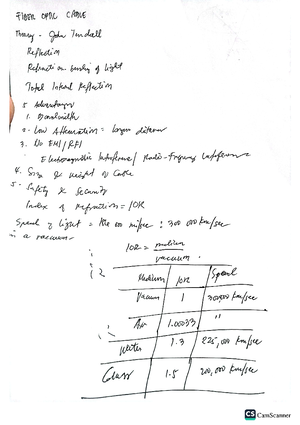 FIBER OPTIC CABLE
Theory - John Tyndall
Reflection
Refraction - Bending of Light
Total Internal Reflection
5 Advantages
1. Bandwidth
2. Low Attenuation = longer distance
3. No EMI/RFI
Electromagnetic Interference/ Radio-Frequency Interference
4. Size & weight of Cable
5. Safety & Security
Index of Refraction = IOR
Speed of light = 186 000 mi/sec : 300 000 km/sec
in a vacuum.
IOR = medium
vacuum
Medium | IOR | Speed
Vacuum | 1 | 300000 km/sec
Air | 1.00033 | "
Water | 1.3 | 225,000 km/sec
Glass | 1.5 | 200,000 km/sec
CS CamScanner